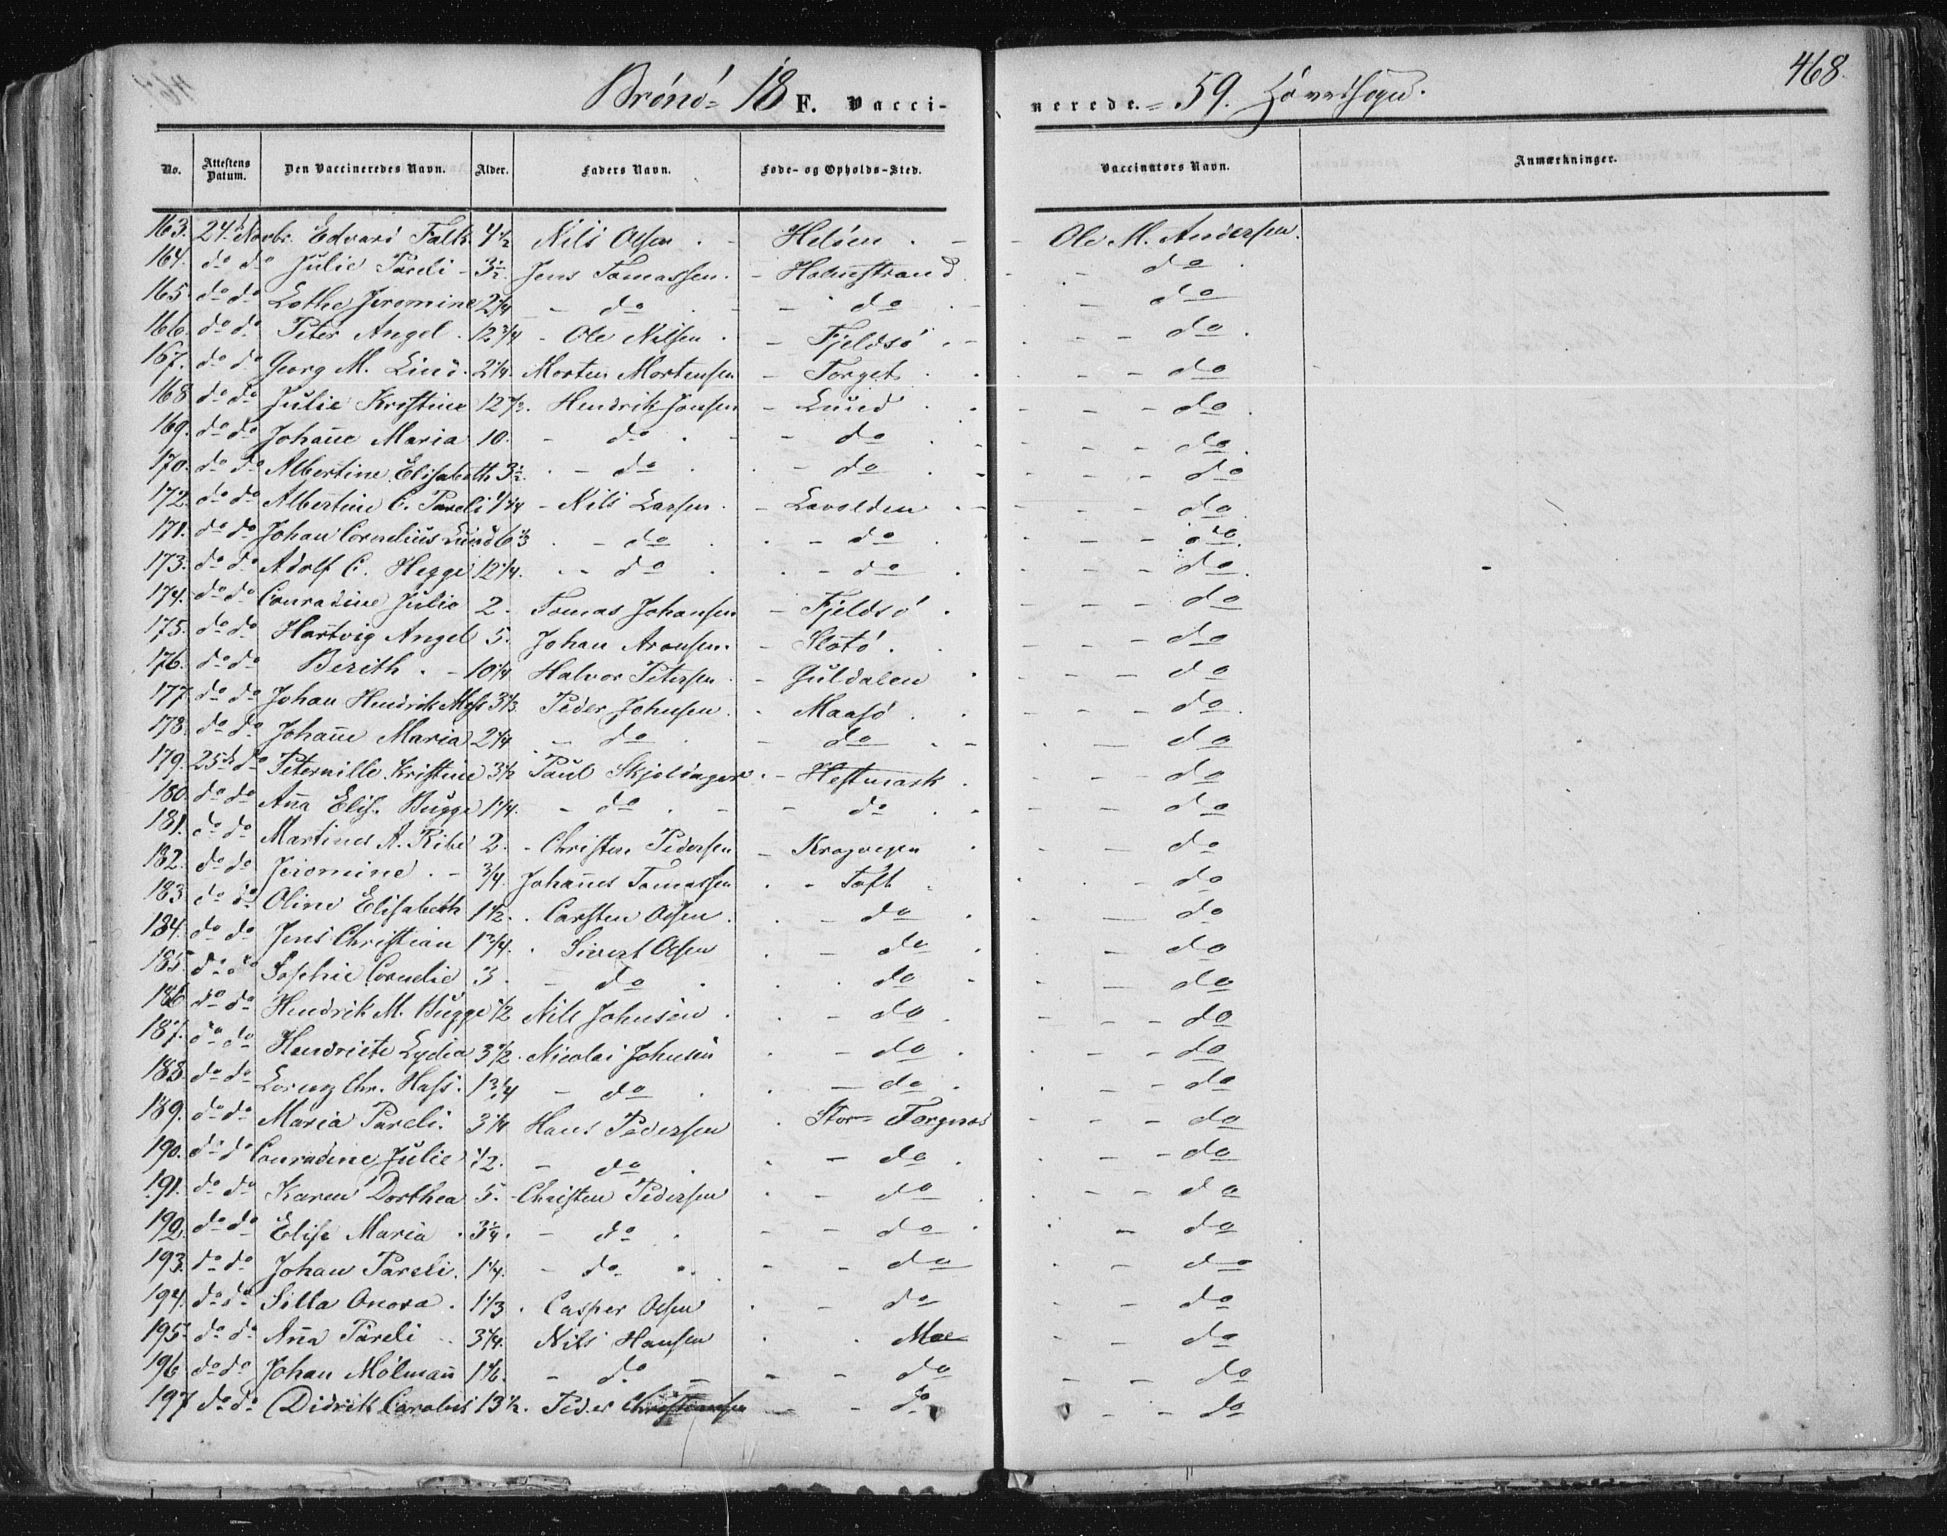 468.
Brönö 18 F. Vaccinerede. 59. Hovedsogn.
No. Attestens Datum. Den Vaccineredes Navn. Alder. Faders Navn. Føde- og Opholds-Sted. Vaccinators Navn. Anmærkninger.
163. 24de Novbr. Edvard Falk 4½ Nils Olsen. Helöen. Ole M. Andersen.
164. do do Julie Pareli 3½ Jens Tomassen. Holmstrand do
165. do do Lothe Jeromine 2¼ do do do
166. do do Peter Angel. 12¾ Ole Nilsen. Fjeldsö do
167. do do Georg M. Lind. 2¼. Morten Mortensen Torget do
168. do do Julie Kristine 12½. Hendrik Jonsen Lund do
169. do do Johan̄e Maria 10. do do do
170. do do Albertine Elisabeth 3½. do do do
172. do do Albertine C. Pareli 1¼ Nils Larsen. Lavolden do
171. do do Johan Cornelius Lund 6⅓ do do do
173. do do Adolf C. Hegge 12¼. do do do
174. do do Conradine Julie 2. Tomas Johansen Fjeldsö do
175. do do Hartvig Angel 5. Johan Aronsen. Slotö. do
176. do do Berith. 10¼ Halvor Petersen Guldalen do
177. do do Johan Hendrik 3⅓. Peder Johnsen. Maasö. do
178. do do Johan̄e Maria 2¼ do do do
179. 25de do Peternille Kristine 3½ Paul Hestmark do
180. do do An̄a Elis. Bugge 1¼. do do do
181. do do Martines A. 2. Christen Pedersen do
182. do do Jeromine. ¾ Johan̄es Tomassen Toft do
183. do do Oline Elisabeth 1½. Carsten Olsen. do do
184. do do Jens Christian 1¾. Sivert Olsen do do
185. do do Sophie Cornelie 3. do do do
186. do do Hendrik M. Bugge ½ Nils Johnsen do do
187. do do Hendricte Lydia 3½. Nicolai Johnsen do do
188. do do Lorenz Chr. Hass. 1¾ do do do
189. do do Maria Pareli. 3¼ Hans Pedersen Stor-Torgnes do
190. do do Conradine Julie ½. do do do
191. do do Karen Dorthea 5. Christen Pedersen do do
192. do do Elise Maria. do do do
193. do do Johan Pareli. 1¼. do do do
194. do do Silla Onora. 1⅓. Casper Olsen do do
195. do do An̄a Pareli 3¼. Nils Hansen Moe do
196. do do Johan Mölman̄ 1⅙. do do do
197 do do Didrik Carolus 13½. Peder Christiansen do do